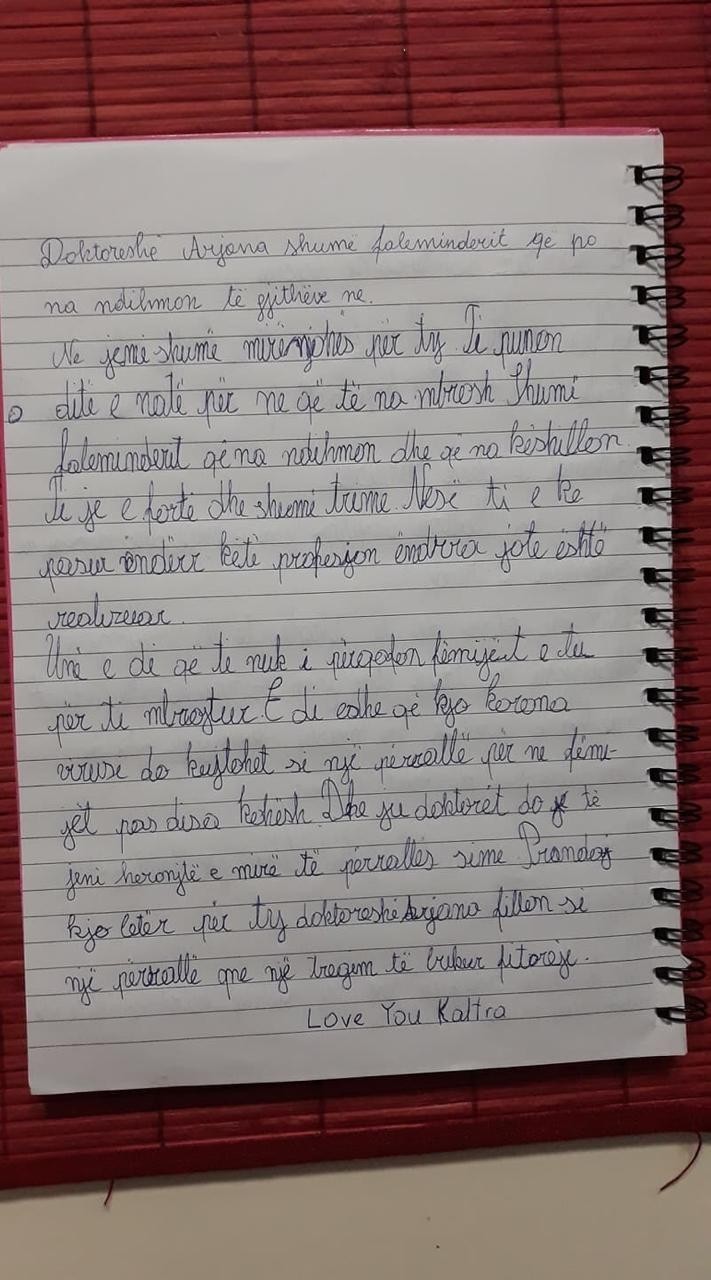 Doktoreshë Arjana shumë faleminderit që po
na ndihmon të gjithëve ne.
Ne jemi shumë mirënjohës për ty Ti punon
ditë e natë për ne që të na mbrosh Shumë
faleminderit që na ndihmon dhe që na këshillon
Ti je e fortë dhe shumë trime. Nese ti e ke
pasur ëndërr këtë profesjon ëndrra jote është
realizuar.
Unë e di që ti nuk i përqafon fëmijët e tu
për ti mbrojtur. E di edhe që kjo korona
viruse do kujtohet si një përrallë për ne fëmi-
jët pas disa kohësh Dhe ju doktorët do të
jeni heronjtë e mirë të përrallës sime Prandaj
kjo letër për ty doktoreshë Arjana fillon si
një përrallë ane një tregim të bukur fitoreje.
Love You Kaltra